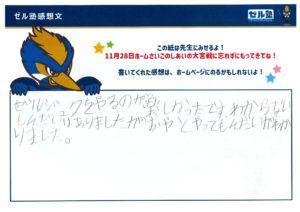 ゼル塾感想文
この紙は先生にみせるよ！
11月28日ホームさいごのしあいの大宮戦に忘れずにもってきてね！
書いてくれた感想は、ホームページにのるかもしれないよ！
ゼルジュークをやるのが楽しかったです。わからない
もんだいはありましたがおやとやってもんだいがわか
りました。